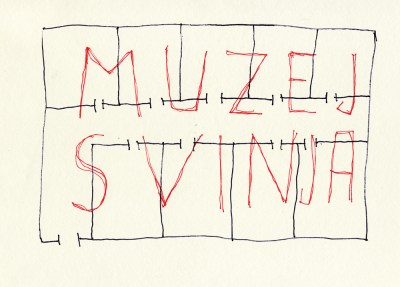 MUZEJ
SVINJA